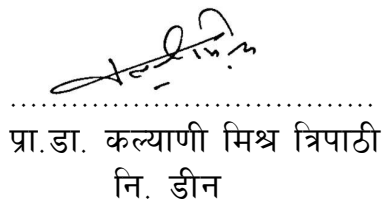 प्रा.डा. कल्याणी मिश्र त्रिपाठी
नि. डीन